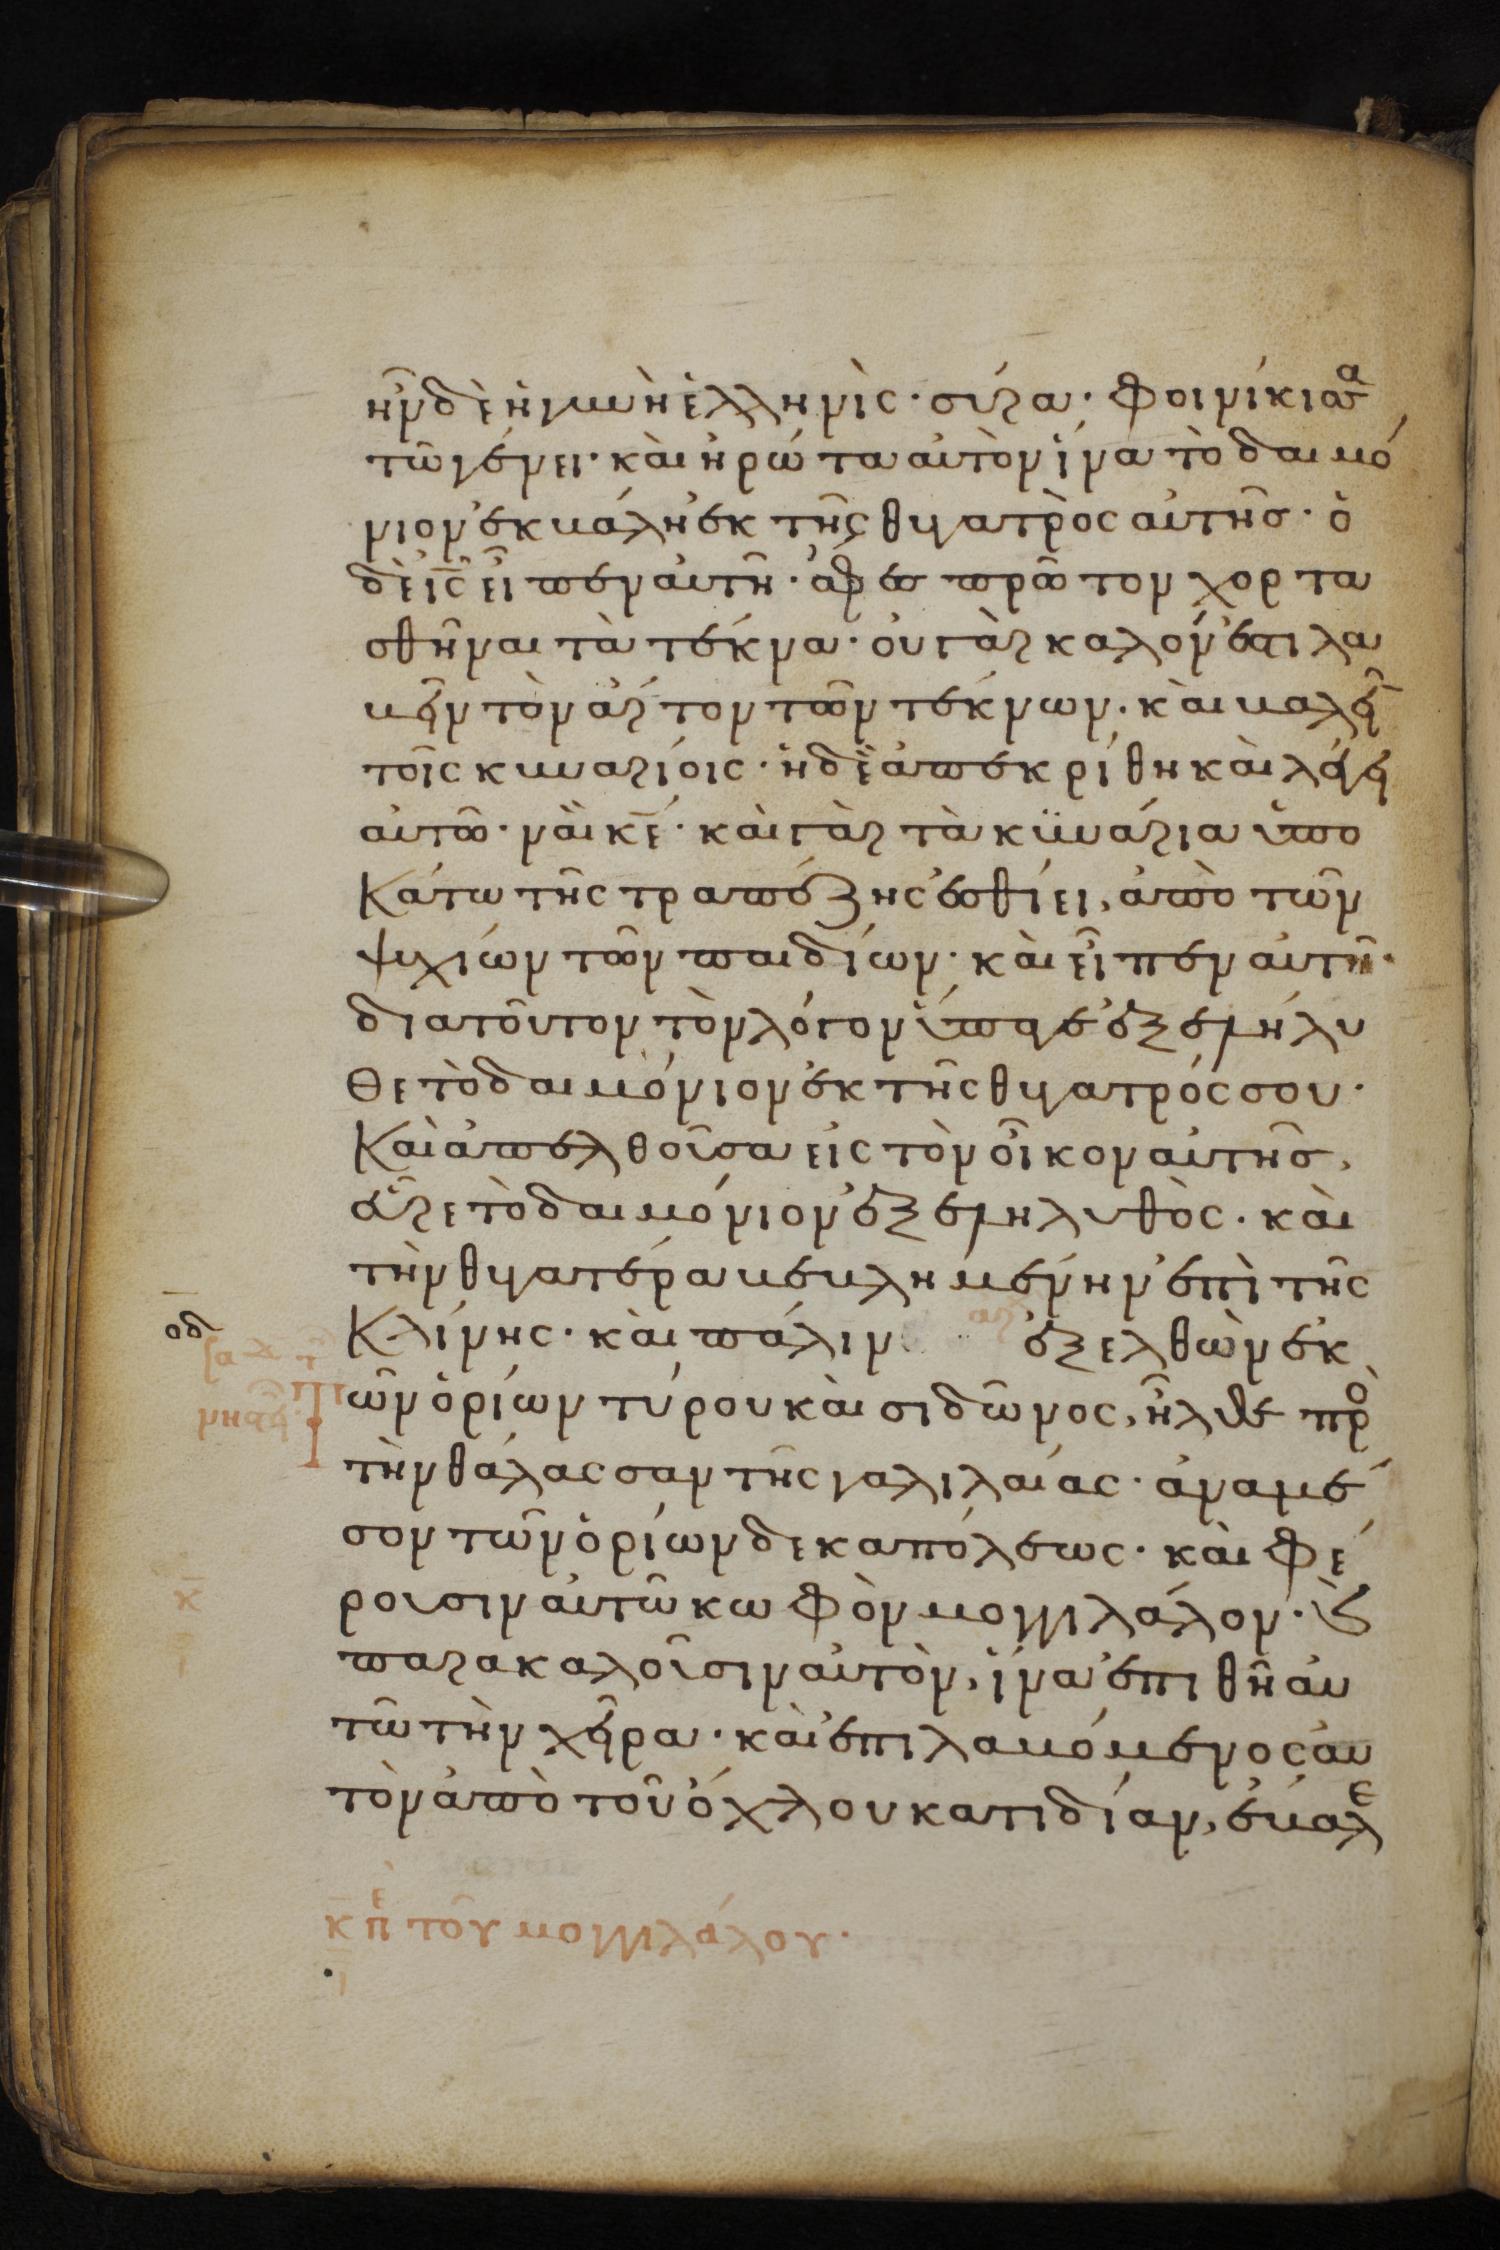 ἦν δὲ ἡ γυνὴ ἑλληνὶς· σύρα· φοινίκισσα
τῶ γένει· καὶ ἠρώτα αὐτὸν ἵνα τὸ δαιμό
νιον ἐκβάλη ἐκ τῆς θυγατρὸς αὐτῆς· ὁ
δὲ ις̅ εἶπεν αὐτῆ· ἄφες πρῶτον χορτα
σθῆναι τὰ τέκνα· οὐ γὰρ καλόν ἐστι λα
βεῖν τὸν ἄρτον τῶν τέκνων· καὶ βαλεῖ
τοῖς κυναρίοις· ἡ δὲ ἀπεκρίθη καὶ λέγει
αὐτῶ· ναὶ κε̅· καὶ γὰρ τὰ κϋνάρια ὑπο
κάτω τῆς τραπέζης ἐσθίει, ἀπὸ τῶν
ψιχίων τῶν παιδίων· καὶ εἶπεν αὐτῆ·
διατοῦτον τὸν λόγον ὕπαγε ἐξελήλυ
θε τὸ δαιμόνιον ἐκ τῆς θυγατρός σου·
Καὶ ἀπελθοῦσα εἰς τὸν οἶκον αὐτῆς,
εὗρε τὸ δαιμόνιον ἐξεληλυθὸς· καὶ
τὴν θυγατέρα βεβλημένην ἐπὶ τῆς
οδ̅ Κλίνης· καὶ πάλιν ἐξελθὼν ἐκ
τῶν ὁρίων τύρου καὶ σιδῶνος, ἦλθε πρὸ
τὴν θάλασσαν τῆς γαλιλαίας· ἀναμέ
σον τῶν ὁρίων δεκαπόλεως· καὶ φέ
κ̅ ρουσιν αὐτῶ κωφὸν μογγιλάλον· καὶ
παρακαλοῦσιν αὐτὸν, ἵνα ἐπιθῆ αὐ
τῶ τὴν χεῖρα· καὶ ἐπιλαβόμενος αὐ
τὸν ἀπὸ τοῦ ὄχλου κατιδίαν, ἔβαλε
κ̅ πε τοῦ μογγιλάλου·